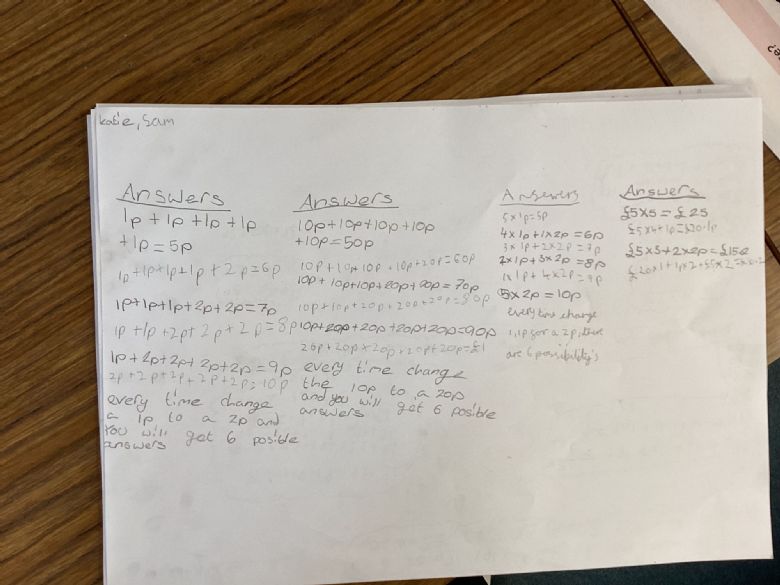 Katie, Sam
Answers
1p + 1p + 1p + 1p
+1p = 5p
1p + 1p + 1p + 1p + 2p = 6p
1p + 1p + 1p + 2p + 2p = 7p
1p + 1p + 2p + 2p + 2p = 8p
1p + 2p + 2p + 2p + 2p = 9p
2p + 2p + 2p + 2p + 2p = 10p
every time change
a 1p to a 2p and
You will get 6 posible
answers
Answers
10p + 10p + 10p + 10p
+10p = 50p
10p + 10p + 10p + 10p + 20p = 60p
10p + 10p + 10p + 20p + 20p = 70p
10p + 10p + 20p + 20p + 20p = 80p
10p + 20p + 20p + 20p + 20p = 90p
20p + 20p + 20p + 20p + 20p = £1
every time change
the 10p to a 20p
and you will get 6 posible
answers
Answers
5 x 1p = 5p
4 x 1p + 1 x 2p = 6p
3 x 1p + 2 x 2p = 7p
2 x 1p + 3 x 2p = 8p
1 x 1p + 4 x 2p = 9p
5 x 2p = 10p
every time change
1, 1p for a 2p, there
are 6 possibility's
Answers
£5 x 5 = £25
£5 x 4 + 1p = £20.1p
£5 x 3 + 2 x 2p =